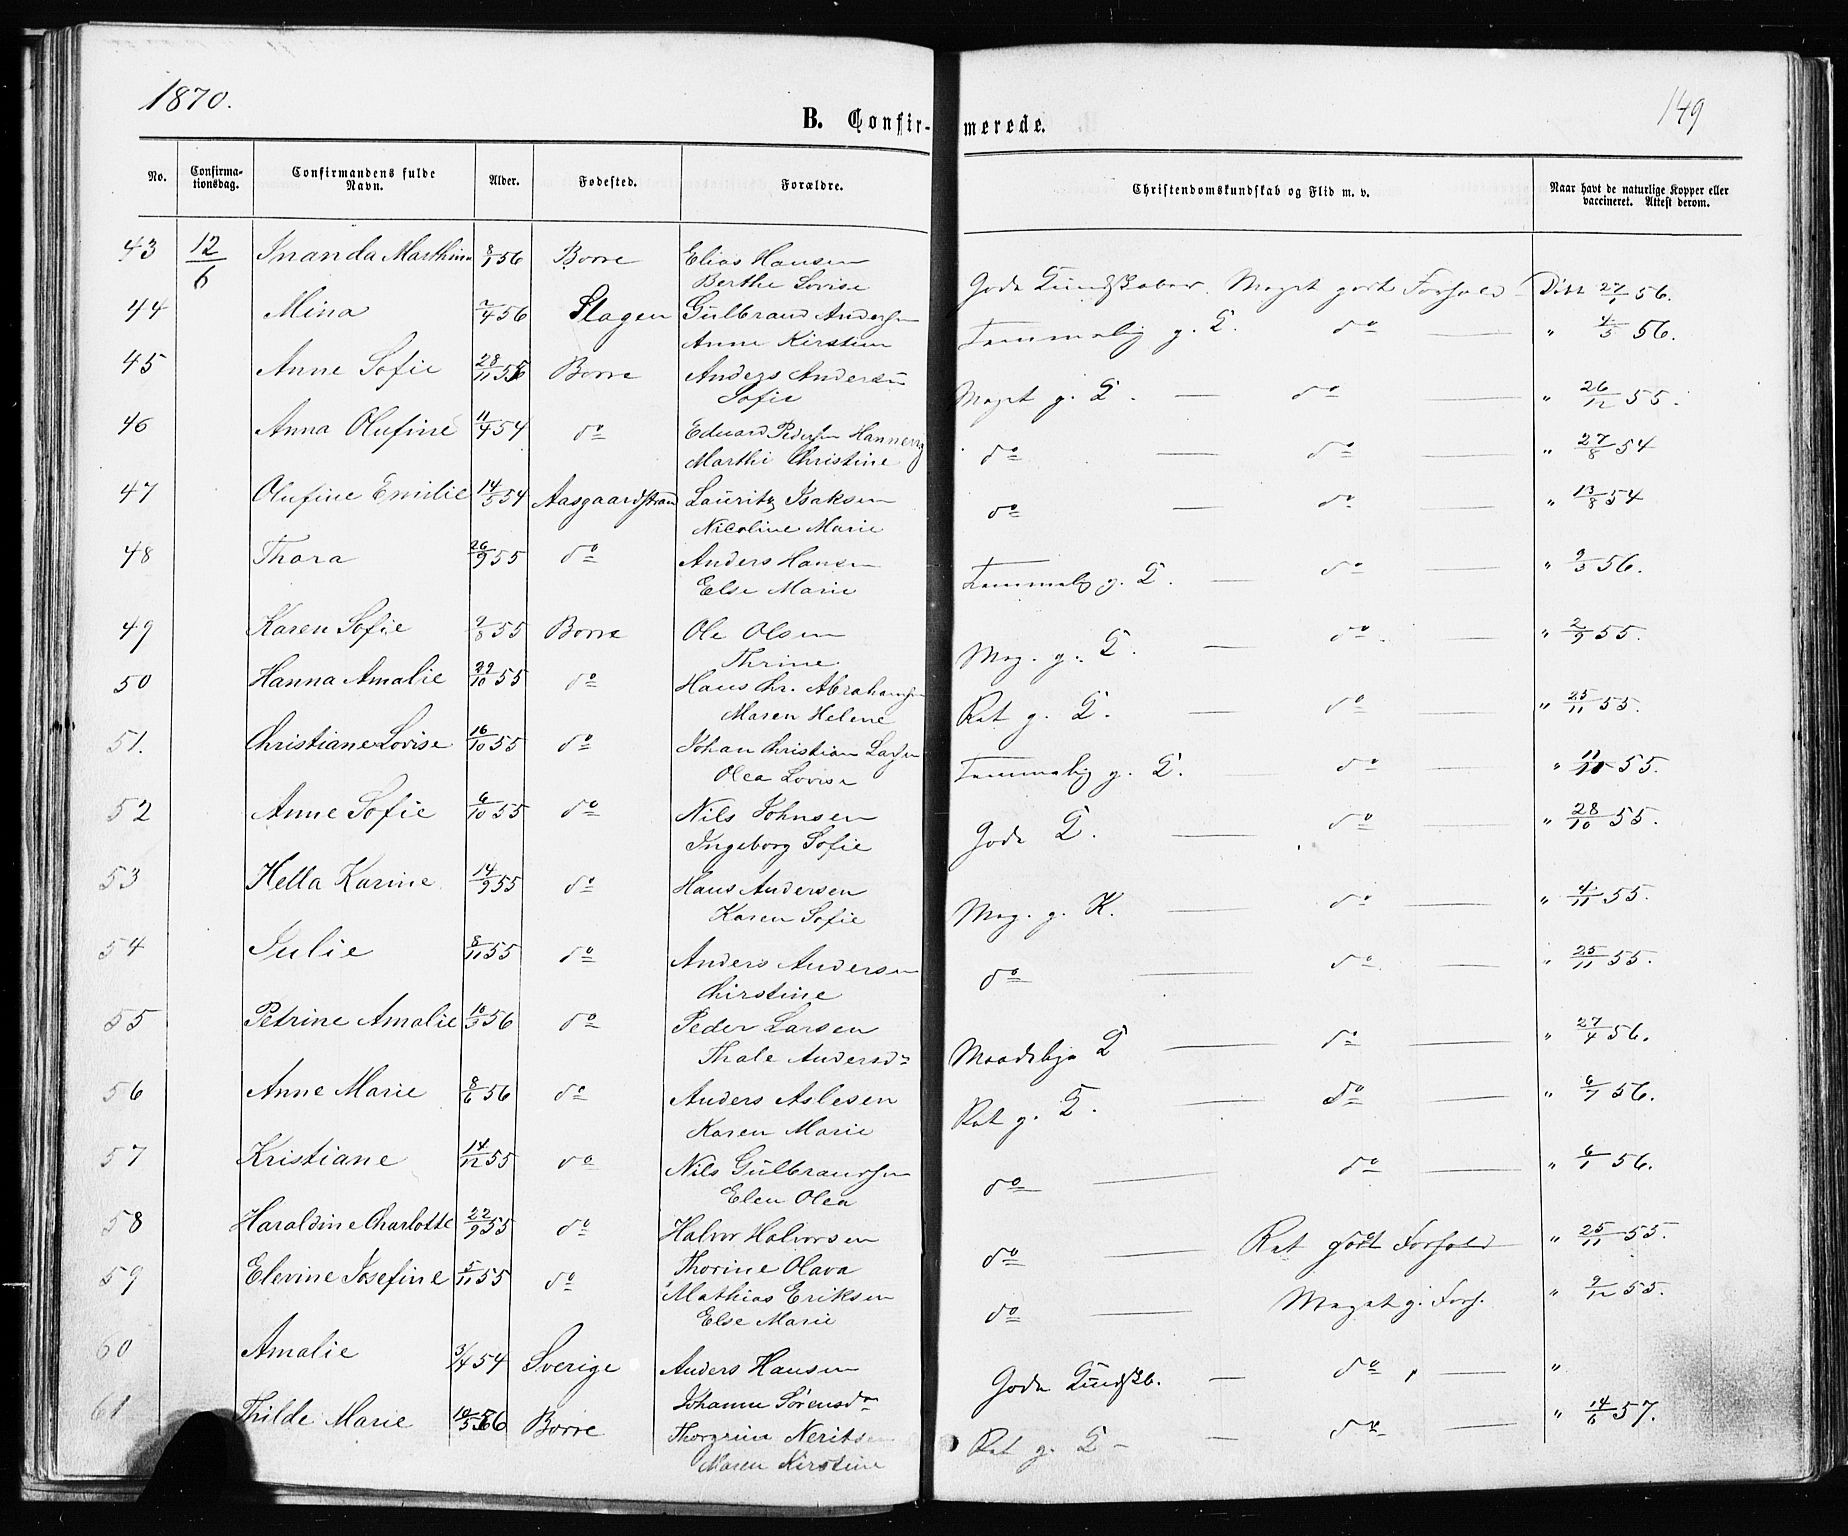 1870.
149
B. Confir-merede.
No.
Confirma-
tionsdag.
Confirmandens fulde
Navn.
Alder.
Fødested.
Forældre.
Christendomskundskab og Flid m. v.
Naar havt de naturlige Kopper eller
vaccineret. Attest derom.
43 12/6 Inanda Marthine 8/1 56 Borre Elias Hansen
Berthe Lovise
Gode Kundskaber. Meget godt Forhold Ditl 27/1 56.
44 Mina 7/4 56 Slagen Gulbrand Andersen
Anne Kirstine
Temmelig g. K. do " 4/5 56.
45 Anne Sofie 28/11 55 Borre Anders Andersen
Sofie
Meget g. K. — do — " 26/12 55.
46 Anna Olufine 11/4 54 do Eduard Pedersen Hannevig
Marthe Christine
do — do — " 27/8 54
47 Olufine Emilie 14/5 54 Aasgaardstrand Lauritz Isaksen
Nicoline Marie
do — do — " 13/8 54
48 Thora 26/9 55 do Anders Hansen
Else Marie
Temmelig g. K. — do — " 9/3 56.
49 Karen Sofie 9/8 55 Borre Ole Olsen
Thrine
Meg. g. K. — do — " 2/9 55.
50 Hanna Amalie 29/10 55 do Hans Chr. Abrahamsen
Maren Helene
Ret g. K. — do — " 25/11 55.
51. Christiane Lovise 16/10 55 do Johan Christian Larsen
Olea Lovise
Temmelig g. K. do — " 11/11 55.
52 Anne Sofie 6/10 55 do Nils Johnsen
Ingeborg Sofie
Gode K. — do — " 28/10 55.
53 Hella Karine 14/9 55 do Hans Andersen
Karen Sofie
Meg. g. K. — do — " 4/11 55.
54 Julie 8/11 55 do Anders Andersen
Kirstine
do — do — " 25/11 55.
55 Petrine Amalie 10/3 56 do Peder Larsen
Thale Andersdr
Maadelige K — do — " 27/4 56.
56 Anne Marie 8/6 56 do Anders Aslesen
Karen Marie
Ret g. K. — do — " 6/7 56.
57 Kristiane 14/12 55 do Nils Gulbrandsen
Elen Olea
do — do — " 6/1 56.
58 Haraldine Charlotte 22/9 55 do Halvor Halvorsen
Thorine Olava
do — Ret godt Forhold " 25/11 55.
59 Elevine Josefine 5/11 55 do Mathias Eriksen
Else Marie
do — Meget g. Forh. " 9/12 55.
60 Amalie 3/4 54 Sverige Anders Hansen
Johanne Sørensdr
Gode Kundsk. — do — "
61 Thilde Marie 10/5 56 Borre Thorgrim Neritsen
Maren Kirstine
Ret g. K — do — " 14/6 57.